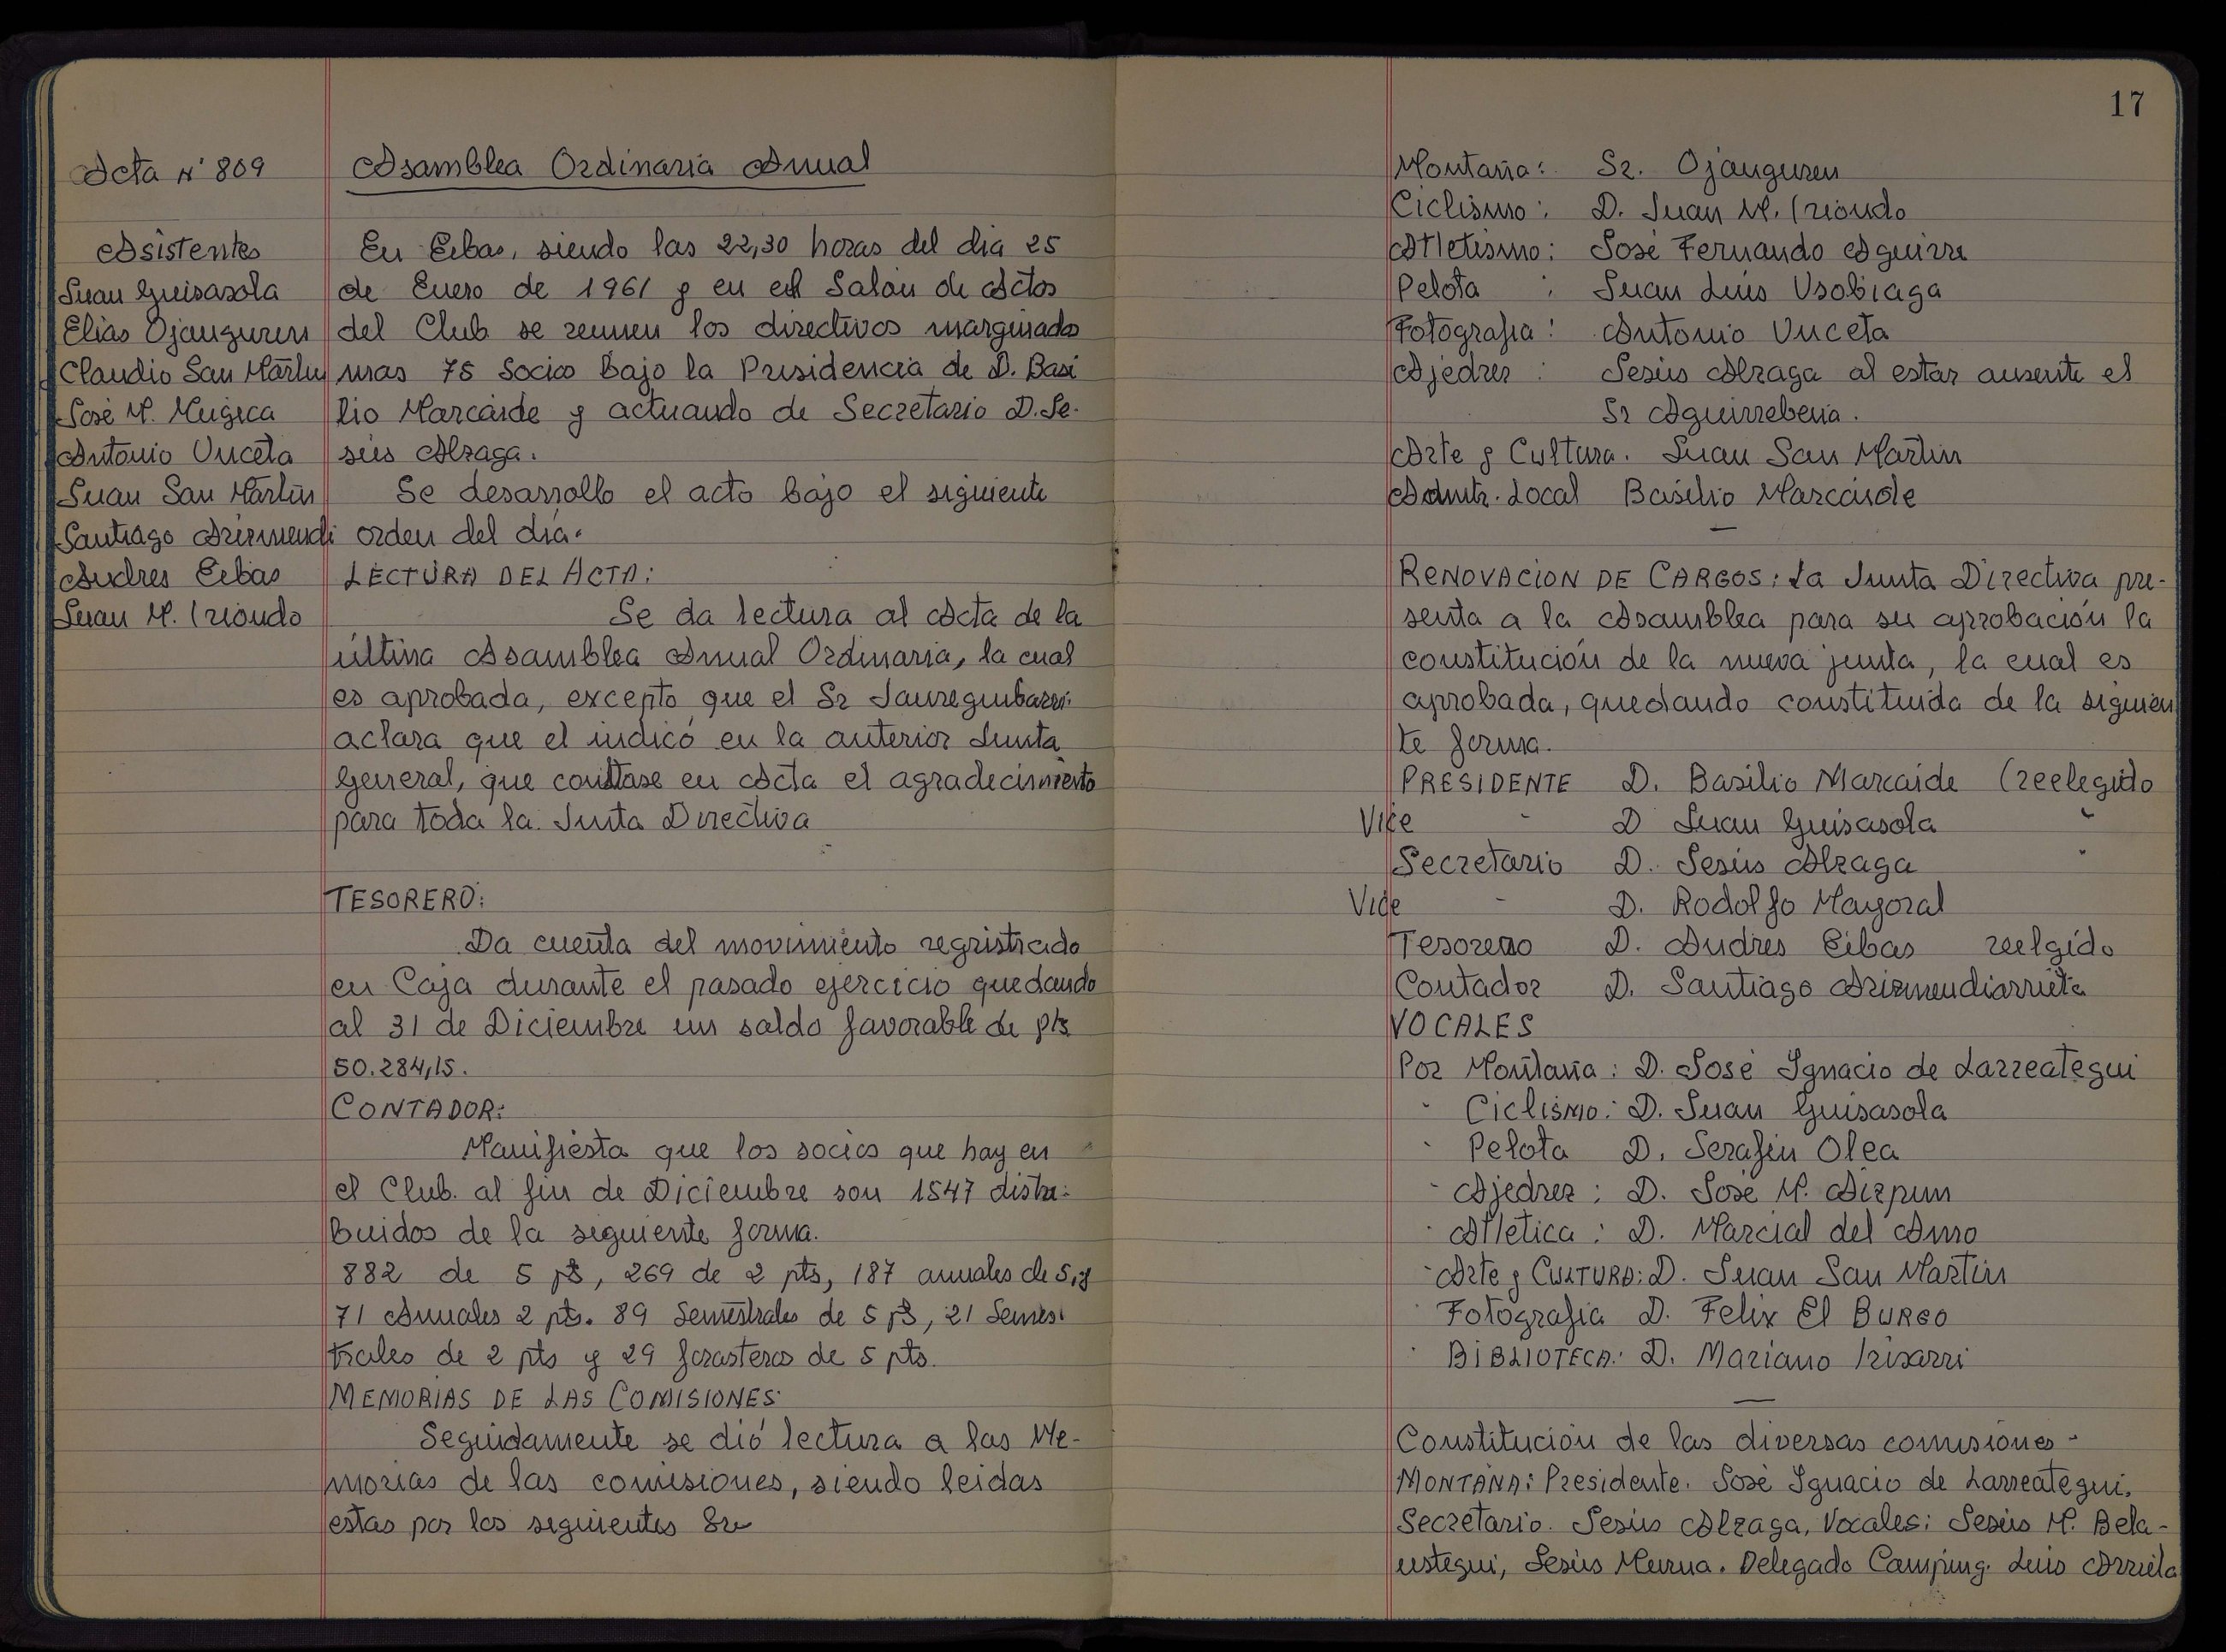 Acta Nº 809
Asistentes
Juan Guisasola
Elías Ojanguren
Claudio San Martin
José M. Mugica
Antonio Unceta
Juan San Martín
Santiago Arizmendi
Andres Eibas
Juan M. Iriondo
Asamblea Ordinaria Anual
En Eibar, siendo las 22,30 horas del dia 25
de Enero de 1961 y en el Salón de Actos
del Club se reunen los directivos marginados
mas 75 Socios bajo la Presidencia de D. Basi
lio Marcaide y actuando de Secretario D. Je-
sús Alzaga.
Se desarrollo el acto bajo el siguiente
orden del día.
LECTURA DEL ACTA:
Se da lectura al Acta de la
última Asamblea Anual Ordinaria, la cual
es aprobada, excepto que el Sr Jaureguibarri
aclara que el indicó en la anterior Junta
General, que constase en Acta el agradecimiento
para toda la Junta Directiva
TESORERO:
Da cuenta del movimiento regristrado
en Caja durante el pasado ejercicio quedando
al 31 de Diciembre un saldo favorable de pts
50.284,15.
CONTADOR:
Manifiesta que los socios que hay en
el Club. al fin de Diciembre son 1547 distri-
buidos de la siguiente forma.
882 de 5 pts, 269 de 2 pts, 187 anuales de 5, y
71 Anuales 2 pts. 89 Semestrales de 5 pts, 21 Semes-
trales de 2 pts y 29 forasteros de 5 pts.
MEMORIAS DE LAS COMISIONES:
Seguidamente se dió lectura a las Me-
morias de las comisiones, siendo leidas
estas por los siguientes Sres
17
Montaña: Sr. Ojanguren
Ciclismo: D. Juan M. Iriondo
Atletismo: José Fernando Aguirre
Pelota : Juan Luis Usobiaga
Fotografia: Antonio Unceta
Ajedrez : Jesús Alzaga al estar ausente el
Sr Aguirrebeña.
Arte y Cultura. Juan San Martin
Admtr. Local Basilio Marcaide
RENOVACION DE CARGOS: La Junta Directiva pre-
senta a la Asamblea para su aprobación la
constitución de la nueva junta, la cual es
aprobada, quedando constituida de la siguien
te forma.
PRESIDENTE D. Basilio Marcaide (reelegido
Vice - D Juan Guisasola "
Secretario D. Jesús Alzaga "
Vice - D. Rodolfo Mayoral
Tesorero D. Andres Eibas reelgido
Contador D. Santiago Arizmendiarrieta
VOCALES
Por Montaña: D. José Ignacio de Larreategui
" Ciclismo: D. Juan Guisasola
" Pelota D. Serafin Olea
" Ajedrez: D. José M. Aizpun
" Atletica: D. Marcial del Amo
" Arte y CULTURA: D. Juan San Martin
" Fotografia D. Felix El BURGO
" BIBLIOTECA: D. Mariano Irisarri
Constitución de las diversas comisiones -
MONTAÑA: Presidente. José Ignacio de Larreategui.
Secretario. Jesús Alzaga, Vocales: Jesús M. Bela-
ustegui, Jesús Murua. Delegado Camping. Luis Arrieta